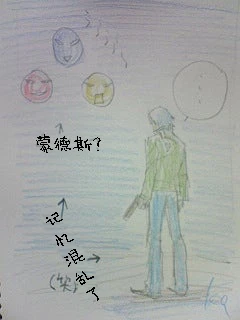 蒙德斯?
记忆混乱了
(笑)